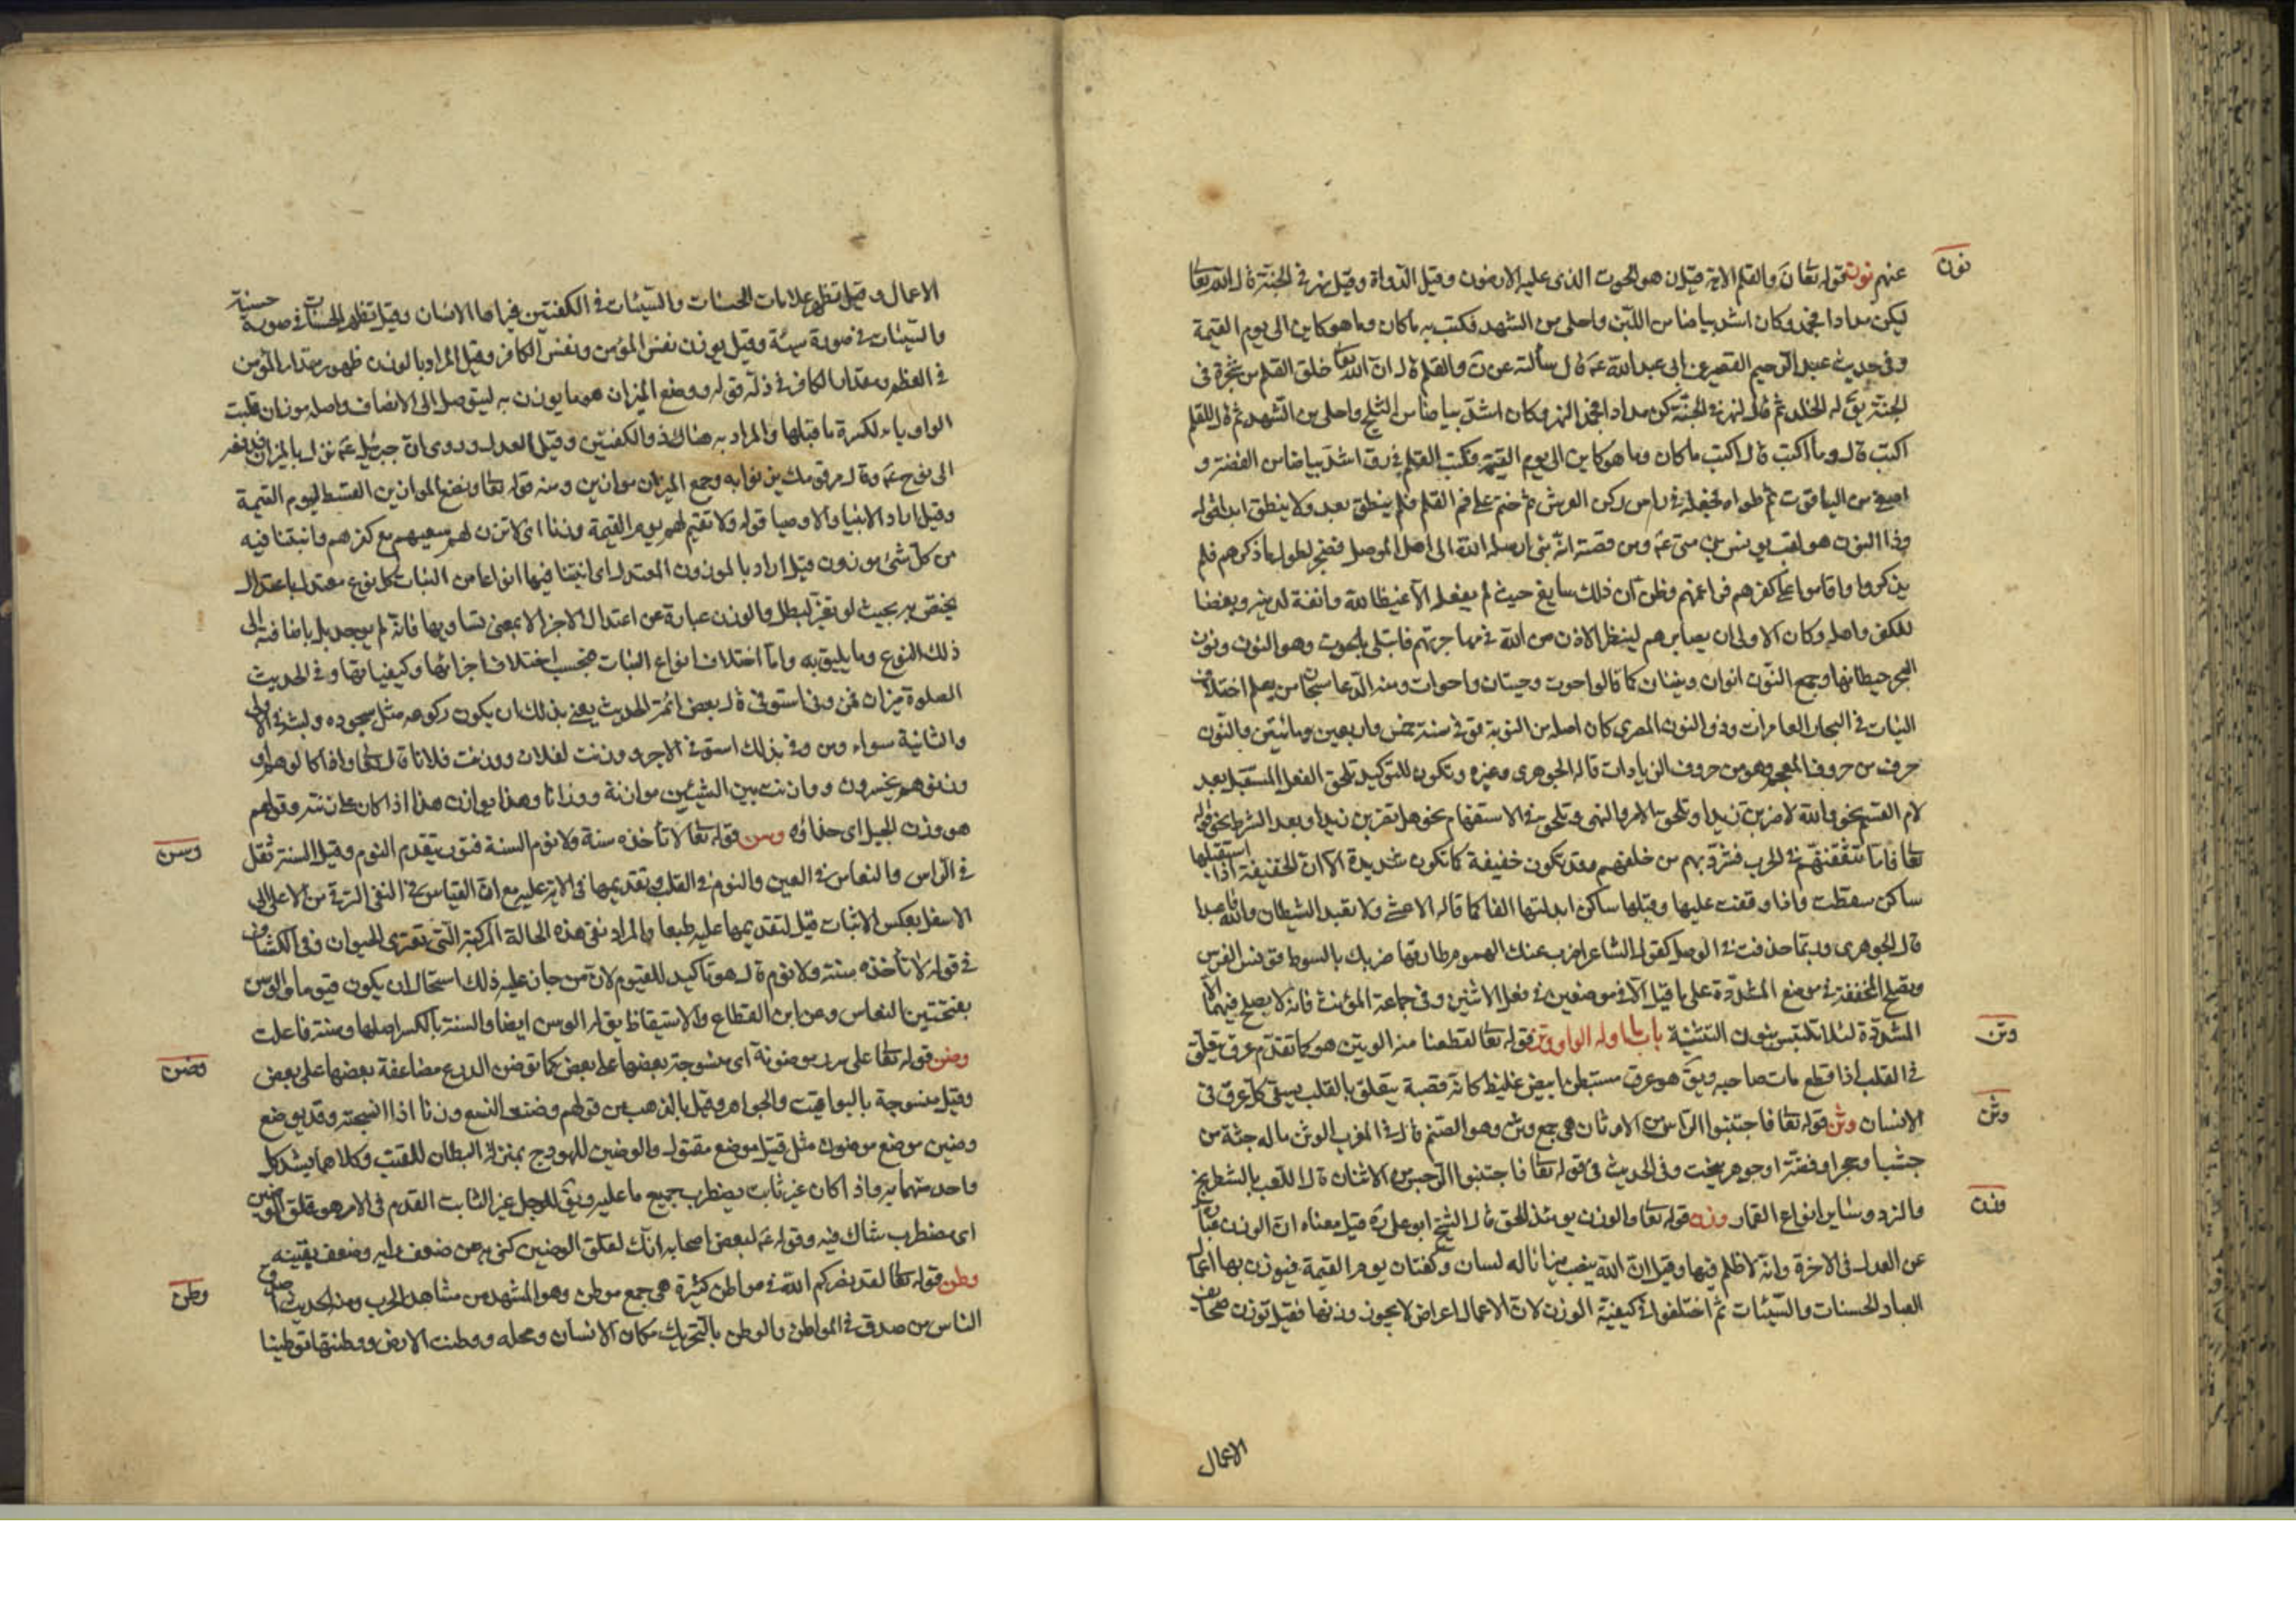 نون
عنهم نون قوله تعا نَ والقلم الاية قيل ن هو الحوت الذى عليه الارضون وقيل الدواة وقيل نهر فى الجنة قال الله تعا
ليكن مدادا فجمد وكان اشد بياضا من اللبن واحلى من الشهد فكتب به ما كان وما هو كاين الى يوم القيمة
وفى حديث عبد الرحيم القصير عن ابى عبد الله عم قال سألته عن نَ والقلم قال ان الله تعا خلق القلم من شجرة فى
الجنة يق له الخلد ثم قال لنهر فى الجنة كن مدادا فجمد النهر وكان اشد بياضا من الثلج واحلى من الشهد ثم قال للقلم
اكتب قال وما اكتب قال اكتب ما كان وما هو كاين الى يوم القيمة فكتب القلم فى رق اشد بياضا من الفضة و
اصفى من الياقوت ثم طواه فجعله فى راس ركن العرش ثم ختم على فم القلم فلم ينطق بعد ولا ينطق ابدا قوله
وذا النون هو لقب يونس بن متى عم ومن قصته انه نبى ارسله الله الى اهل الموصل فضجر لطول ما ذكرهم فلم
يذكروا واقاموا على كفرهم فراغمهم وظن ان ذلك سايغ حيث لم يفعله الا غيظا لله وانفة لدينه وبغضا
للكفر واهله وكان الاولى ان يصابرهم لينظر الاذن من الله فى مهاجرتهم فابتلى بالحوت وهو النون ونون
البحر حيطانها وجمع النون انوان ونينان كما قالوا حوت وحيتان واحوات ومنه الدعا سبحان من يعلم اختلاف
النيات فى البحار الغامرات وذو النون المصرى كان اصله من النوبة توفى سنة خمس واربعين ومائتين والنون
حرف من حروف المعجم وهو من حروف الزيادات قاله الجوهرى وغيره وتكون للتوكيد تلحق الفعل المستقبل بعد
لام القسم نحو والله لاضربن زيدا وتلحق الامر والنهى وتلحق فى الاستفهام نحو هل تضربن زيدا وبعد الشرط نحو قوله
تعا فاما تثقفنهم فى الحرب فشرد بهم من خلفهم وقد تكون خفيفة كما تكون شديدة الا ان الخفيفة اذا استقبلها
ساكن سقطت واذا وقفت عليها وقبلها ساكن ابدلتها الفا كما قاله الاعشى ولا تعبد الشيطان والله فاعبدا
قال الجوهرى وربما حذفت فى الوصل كقول الشاعر اضرب عنك الهموم طارقها ضربك بالسوط قونس الفرس
ويصلح المخففة فى موضع المشددة على ما قيل الا فى موضعين فى فعل الاثنين وفى جماعة المؤنث فانه لا يصلح فيهما الا
المشددة لئلا تلتبس بنون التثنية باب ما اوله الواو وتن قوله تعا لقطعنا منه الوتين هو كما تقدم عرق يتعلق
وتن
فى القلب اذا قطع مات صاحبه ويق هو عرق مستبطن ابيض غليظ كانه قصبة يتعلق بالقلب يسقى كل عرق فى
الانسان وثن قوله تعا فاجتنبوا الرجس من الاوثان هى جمع وثن وهو الصنم قال فى المغرب الوثن ماله جثة من
وثن
خشب او حجر او فضة او جوهر ينحت وفى الحديث فى قوله تعا فاجتنبوا الرجس من الاوثان قال اللعب بالشطرنج
والنرد وساير انواع القمار وزن قوله تعا والوزن يومئذ الحق قال الشيخ ابو على ره قيل معناه ان الوزن عبارة
وزن
عن العدل فى الاخرة وانه لا ظلم فيها وقيل ان الله ينصب ميزانا له لسان وكفتان يوم القيمة فيوزن بها اعمال
العباد الحسنات والسيئات ثم اختلفوا فى كيفية الوزن لان الاعمال اعراض لا يجوز وزنها فقيل توزن صحائف
الاعمال
الاعمال وقيل تظهر علامات للحسنات والسيئات فى الكفتين فيراها الانسان وقيل تظهر الحسنات فى صورة حسنة
والسيئات فى صورة سيئة وقيل يوزن نفس المؤمن ونفس الكافر وقيل المراد بالوزن ظهور مقدار المؤمن
فى العظم ومقدار الكافر فى الذلة قوله ووضع الميزان هو ما يوزن به ليتوصل الى الانصاف واصله موزان قلبت
الواو ياء لكسرة ما قبلها والمراد به هناك ذو الكفتين وقيل العدل وروى ان جبرئيل عم نزل بالميزان فدفعه
الى نوح عم وقال مر قومك يزنوا به وجمع الميزان موازين ومنه قوله تعا ونضع الموازين القسط ليوم القيمة
وقيل اراد الانبياء والاوصيا قوله ولا نقيم لهم يوم القيمة وزنا اى لا تزن لهم سعيهم مع كفرهم وانبتنا فيه
من كل شئ موزون قيل اراد بالموزون المعتدل اى انبتنا فيها انواعا من النبات كل نوع معتدل باعتدال
يختص به بحيث لو تغير لبطل والوزن عبارة عن اعتدال الاجزا لا بمعنى تساويها فانه لم يوجد بل باضافته الى
ذلك النوع وما يليق به واما اختلاف انواع النبات فبحسب اختلاف اجزائها وكيفياتها وفى الحديث
الصلوة ميزان فمن وفى استوفى قال بعض ائمة الحديث يعنى بذلك ان يكون ركوعه مثل سجوده ولبثه فى الاولى
والثانية سواء ومن وفى بذلك استوفى الاجر ووزنت لفلان ووزنت فلانا قال تعا واذا كالوهم او
وزنوهم يخسرون ووازنت بين الشيئين موازنة ووزانا وهذا يوازن هذا اذا كان على زنته وقولهم
هو وزن الجبل اى حذاؤه وسن قوله تعا لا تأخذه سنة ولا نوم السنة فتور يتقدم النوم وقيل السنة ثقل
وسن
فى الرأس والنعاس فى العين والنوم فى القلب وتقديمها فى الاية عليه مع ان القياس فى النفى الترقى من الاعلى الى
الاسفل بعكس الاثبات قيل لتقديمها عليه طبعا والمراد نفى هذه الحالة المركبة التى تعترى الحيوان وفى الكشاف
فى قوله لا تأخذه سنة ولا نوم قال هو تأكيد للقيوم لان من جاز عليه ذلك استحال ان يكون قيوما والوسن
بفتحتين النعاس وعن ابن القطاع والاستيقاظ يق له الوسن ايضا والسنة بالكسر اصلها وسنة فاعلت
وضن قوله تعا على سرر موضونة اى منسوجة بعضها على بعض كما توضن الدرع مضاعفة بعضها على بعض
وضن
وقيل منسوجة باليواقيت والجواهر وقيل بالذهب من قولهم وضنت النسع وزنا اذا نسجته وقد يوضع
وضين موضع موضون مثل قتيل موضع مقتول والوضين للهودج بمنزلة البطان للقتب وكلاهما يشد كل
واحد منهما به واذا كان غير ثابت يضطرب جميع ما عليه ويق للرجل غير الثابت القدم فى الامر هو قلق الوضين
اى مضطرب شاك فيه وقوله عم لبعض اصحابه انك لقلق الوضين كنى به عن ضعف رايه وضعف يقينه
وطن قوله تعا لقد نصركم الله فى مواطن كثيرة هى جمع موطن وهو المشهد من مشاهد الحرب ومنه الحديث اصدق
وطن
الناس من صدق فى المواطن والوطن بالتحريك مكان الانسان ومحله ووطنت الارض ووطنتها توطينا